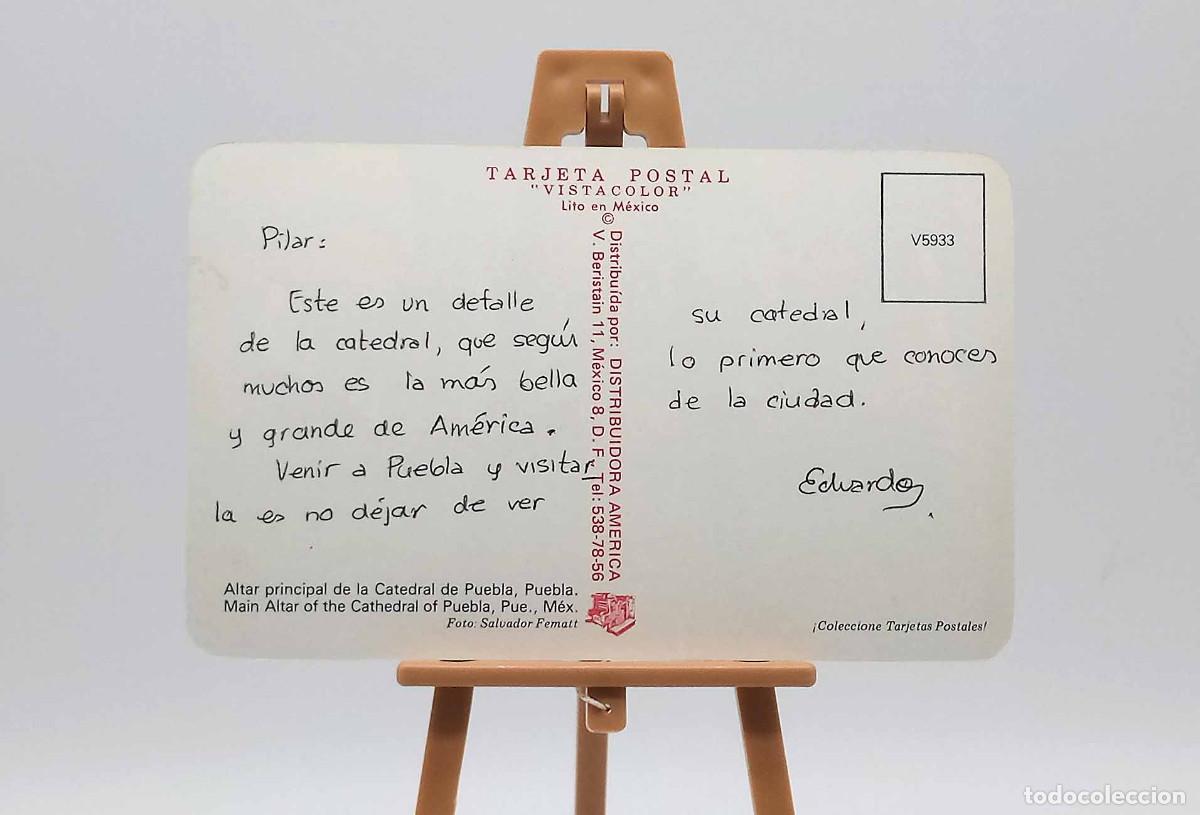 TARJETA POSTAL
"VISTACOLOR"
Lito en México
©
Distribuída por: DISTRIBUIDORA AMERICA
V. Beristain 11, México 8, D. F. Tel: 538-78-56
V5933
Pilar:
Este es un detalle
de la catedral, que según
muchos es la más bella
y grande de América.
Venir a Puebla y visitar
la es no déjar de ver
su catedral,
lo primero que conoces
de la ciudad.
Eduardo
Altar principal de la Catedral de Puebla, Puebla.
Main Altar of the Cathedral of Puebla, Pue., Méx.
Foto: Salvador Fematt
¡Coleccione Tarjetas Postales!
todocoleccion